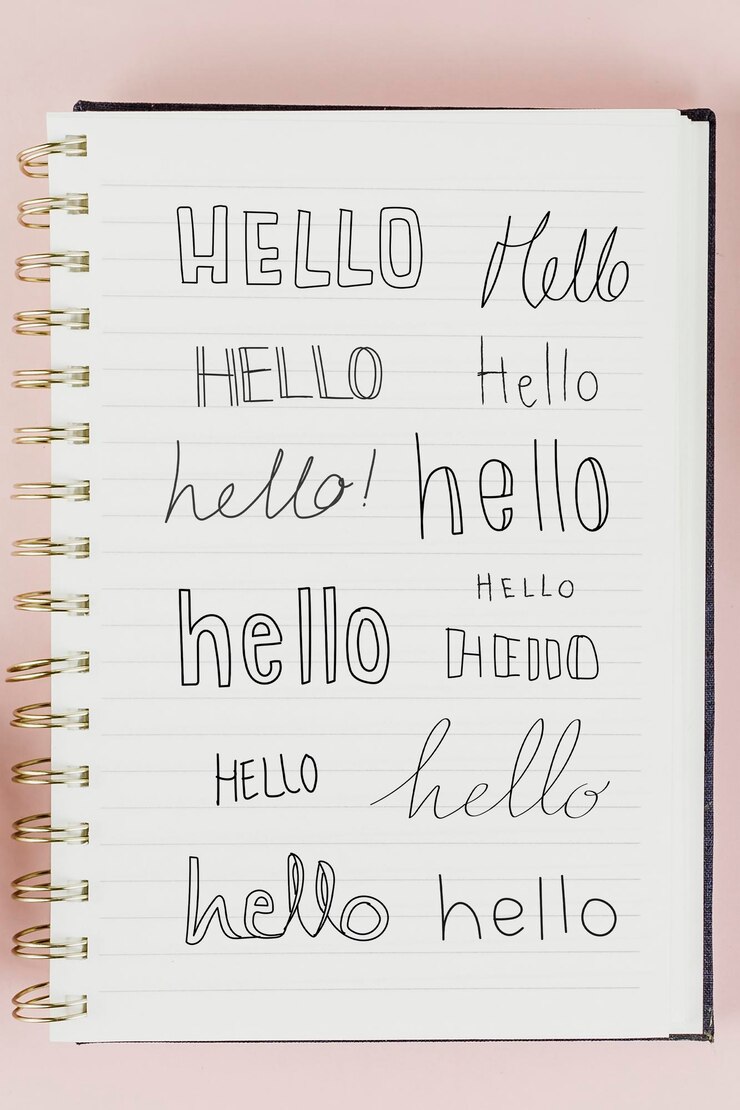 HELLO Hello
HELLO Hello
hello! hello
HELLO
hello HELLO
HELLO hello
hello hello